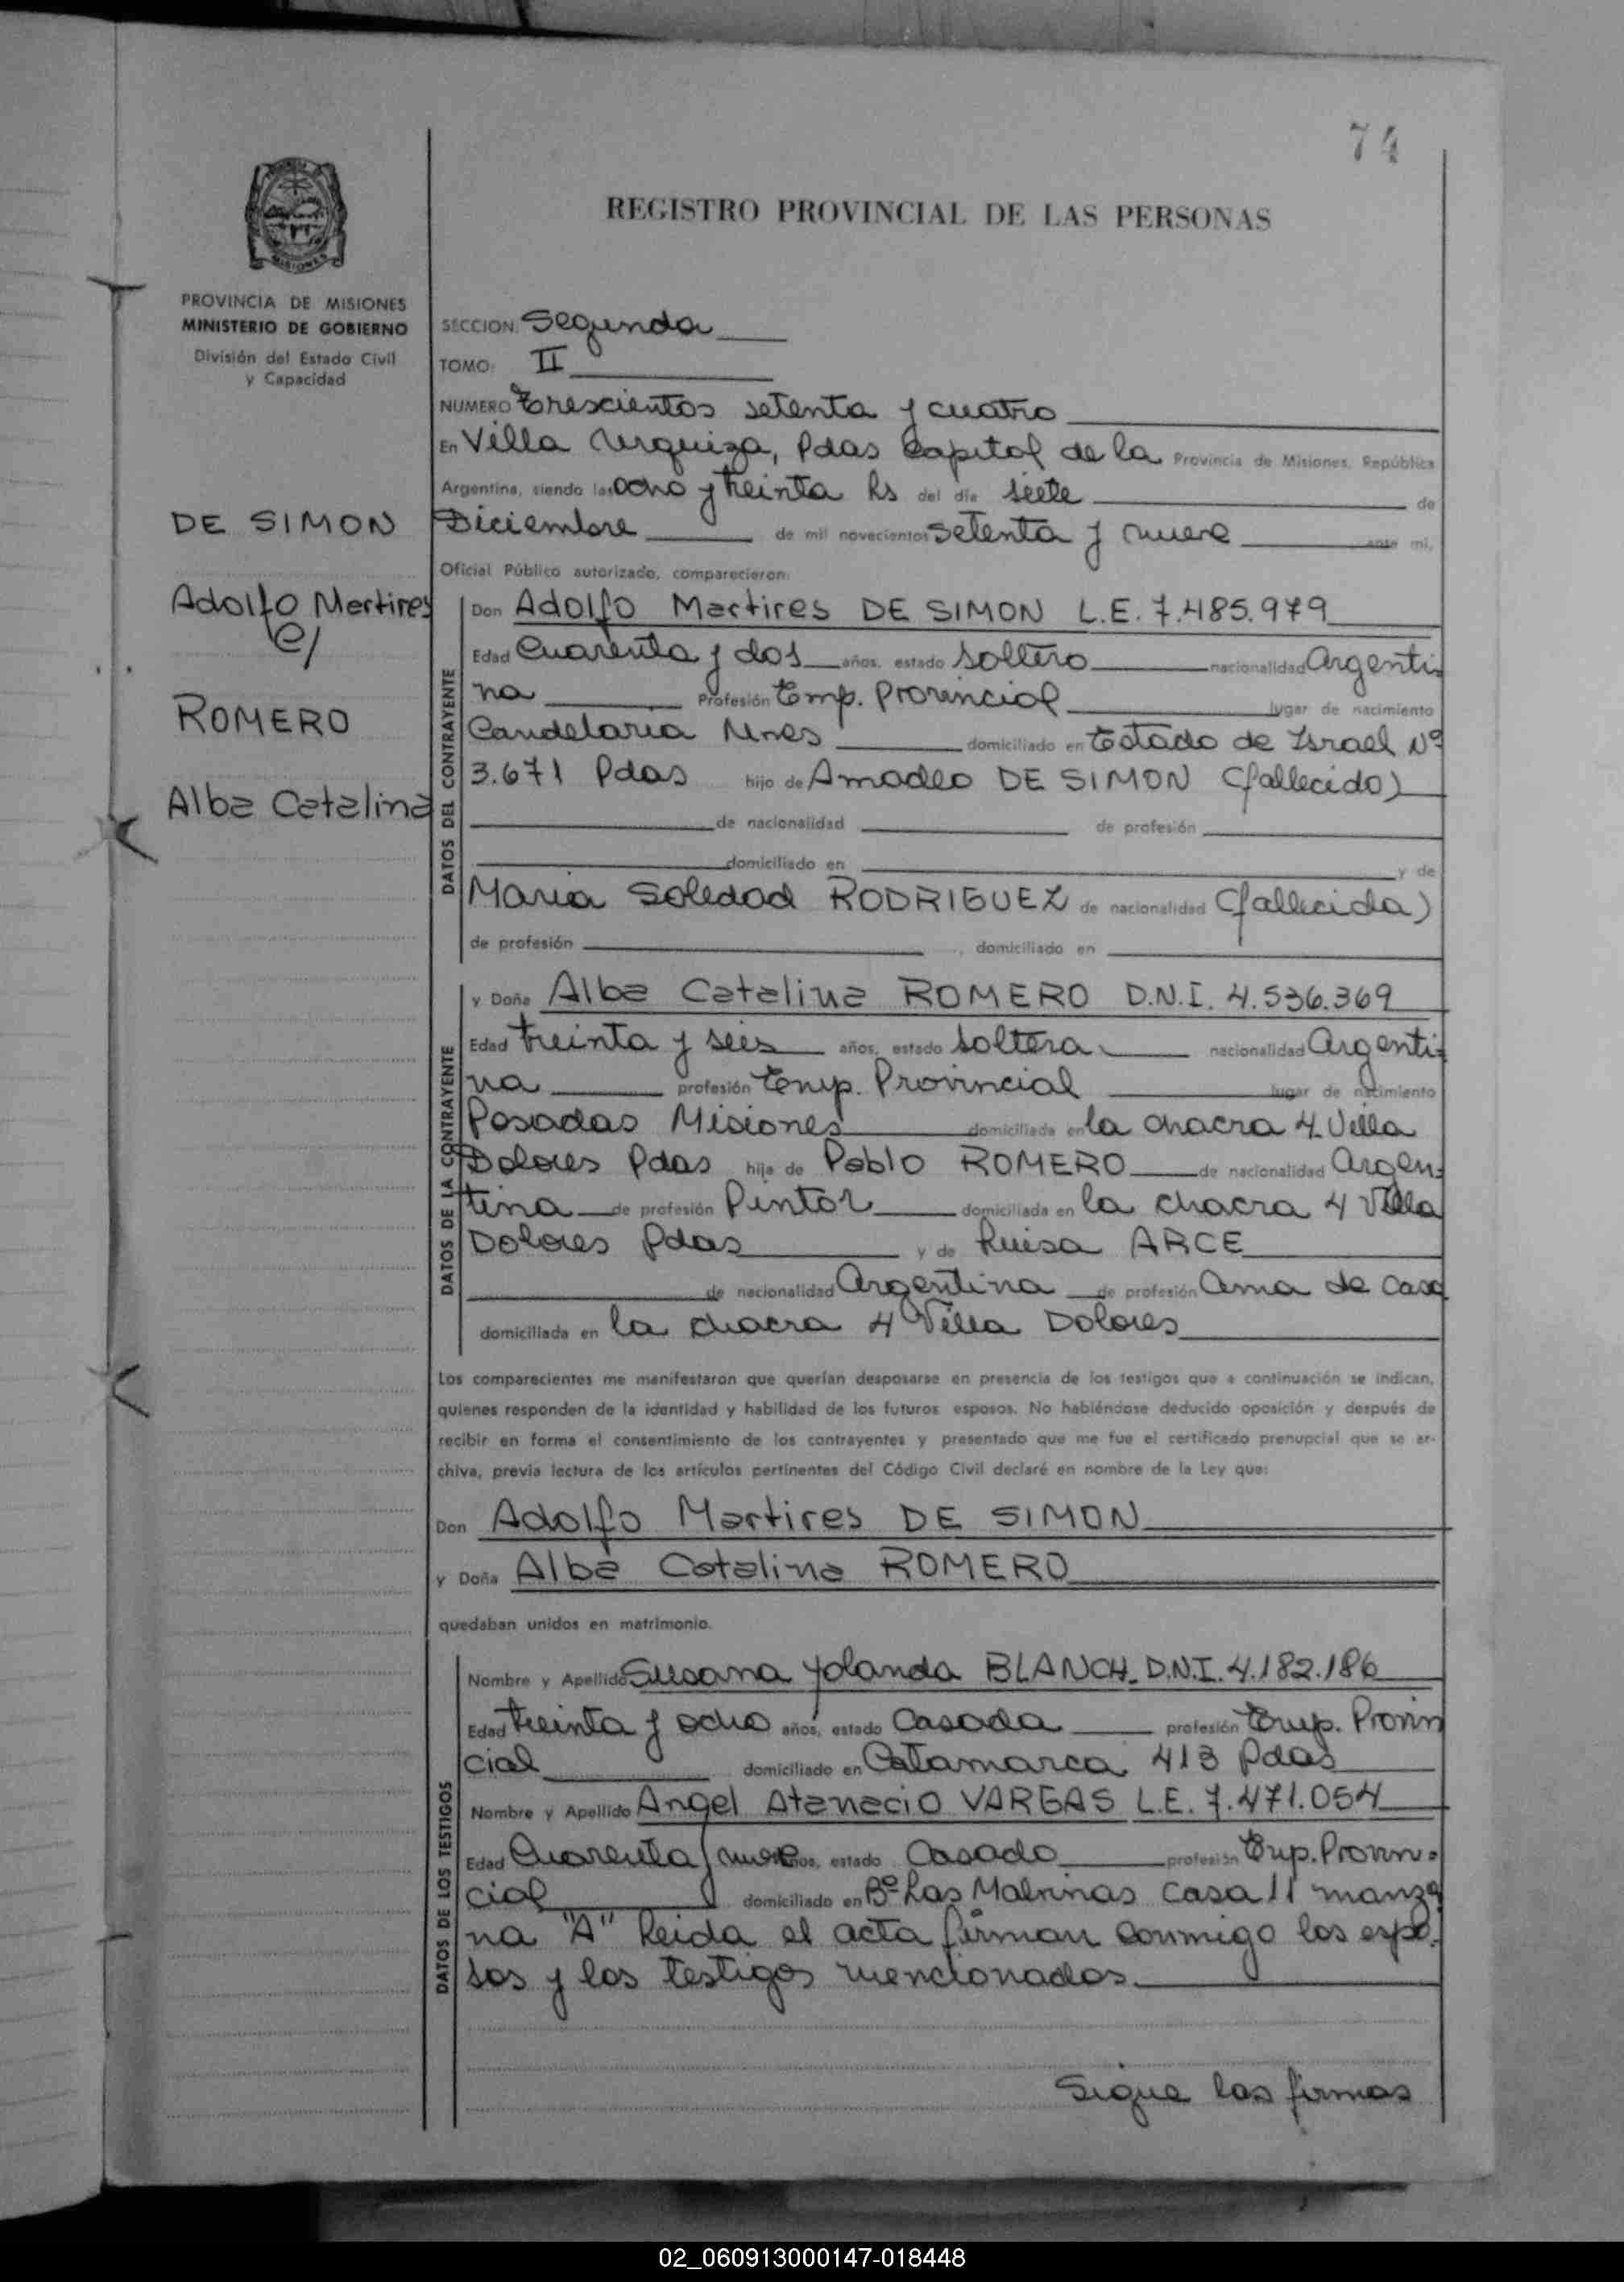 74
MISIONES
PROVINCIA DE MISIONES
MINISTERIO DE GOBIERNO
División del Estado Civil
y Capacidad
DE SIMON
Adolfo Mertires
c/
ROMERO
Alba Catalina
REGISTRO PROVINCIAL DE LAS PERSONAS
SECCION: Segunda
TOMO: II
NUMERO Trescientos setenta y cuatro
En Villa Urquiza, Pdas Capital de la Provincia de Misiones, República
Argentina, siendo las ocho y treinta hs del día siete de
Diciembre de mil novecientos setenta y nueve ante mí,
Oficial Público autorizado, comparecieron:
DATOS DEL CONTRAYENTE
Don Adolfo Martires DE SIMON L.E. 7.485.979
Edad Cuarenta y dos años, estado soltero nacionalidad Argenti-
na Profesión Emp. Provincial lugar de nacimiento
Candelaria Mnes domiciliado en Estado de Israel Nº
3.671 Pdas hijo de Amadeo DE SIMON (fallecido)
de nacionalidad de profesión
domiciliado en y de
Maria Soledad RODRIGUEZ de nacionalidad (fallecida)
de profesión , domiciliado en
DATOS DE LA CONTRAYENTE
y Doña Alba Catalina ROMERO D.N.I. 4.536.369
Edad treinta y seis años, estado soltera nacionalidad Argenti-
na profesión Emp. Provincial lugar de nacimiento
Posadas Misiones domiciliada en la chacra 4 Villa
Dolores Pdas hija de Pablo ROMERO de nacionalidad Argen-
tina de profesión Pintor domiciliada en la chacra 4 Villa
Dolores Pdas y de Luisa ARCE
de nacionalidad Argentina de profesión Ama de casa
domiciliada en la chacra 4 Villa Dolores
Los comparecientes me manifestaron que querían desposarse en presencia de los testigos que a continuación se indican,
quienes responden de la identidad y habilidad de los futuros esposos. No habiéndose deducido oposición y después de
recibir en forma el consentimiento de los contrayentes y presentado que me fue el certificado prenupcial que se ar-
chiva, previa lectura de los artículos pertinentes del Código Civil declaré en nombre de la Ley que:
Don Adolfo Martires DE SIMON
y Doña Alba Catalina ROMERO
quedaban unidos en matrimonio.
DATOS DE LOS TESTIGOS
Nombre y Apellido Susana Yolanda BLANCH. D.N.I. 4.182.186
Edad treinta y ocho años, estado Casada profesión Emp. Provin
cial domiciliado en Catamarca 413 Pdas
Nombre y Apellido Angel Atanacio VARGAS L.E. 7.471.054
Edad Cuarenta y nueve años, estado Casado profesión Emp. Provin-
cial domiciliado en Bº Las Malvinas casa 11 manza
na "A" Leida el acta firman conmigo los espo-
sos y los testigos mencionados.
Sigue las firmas
02_060913000147-018448